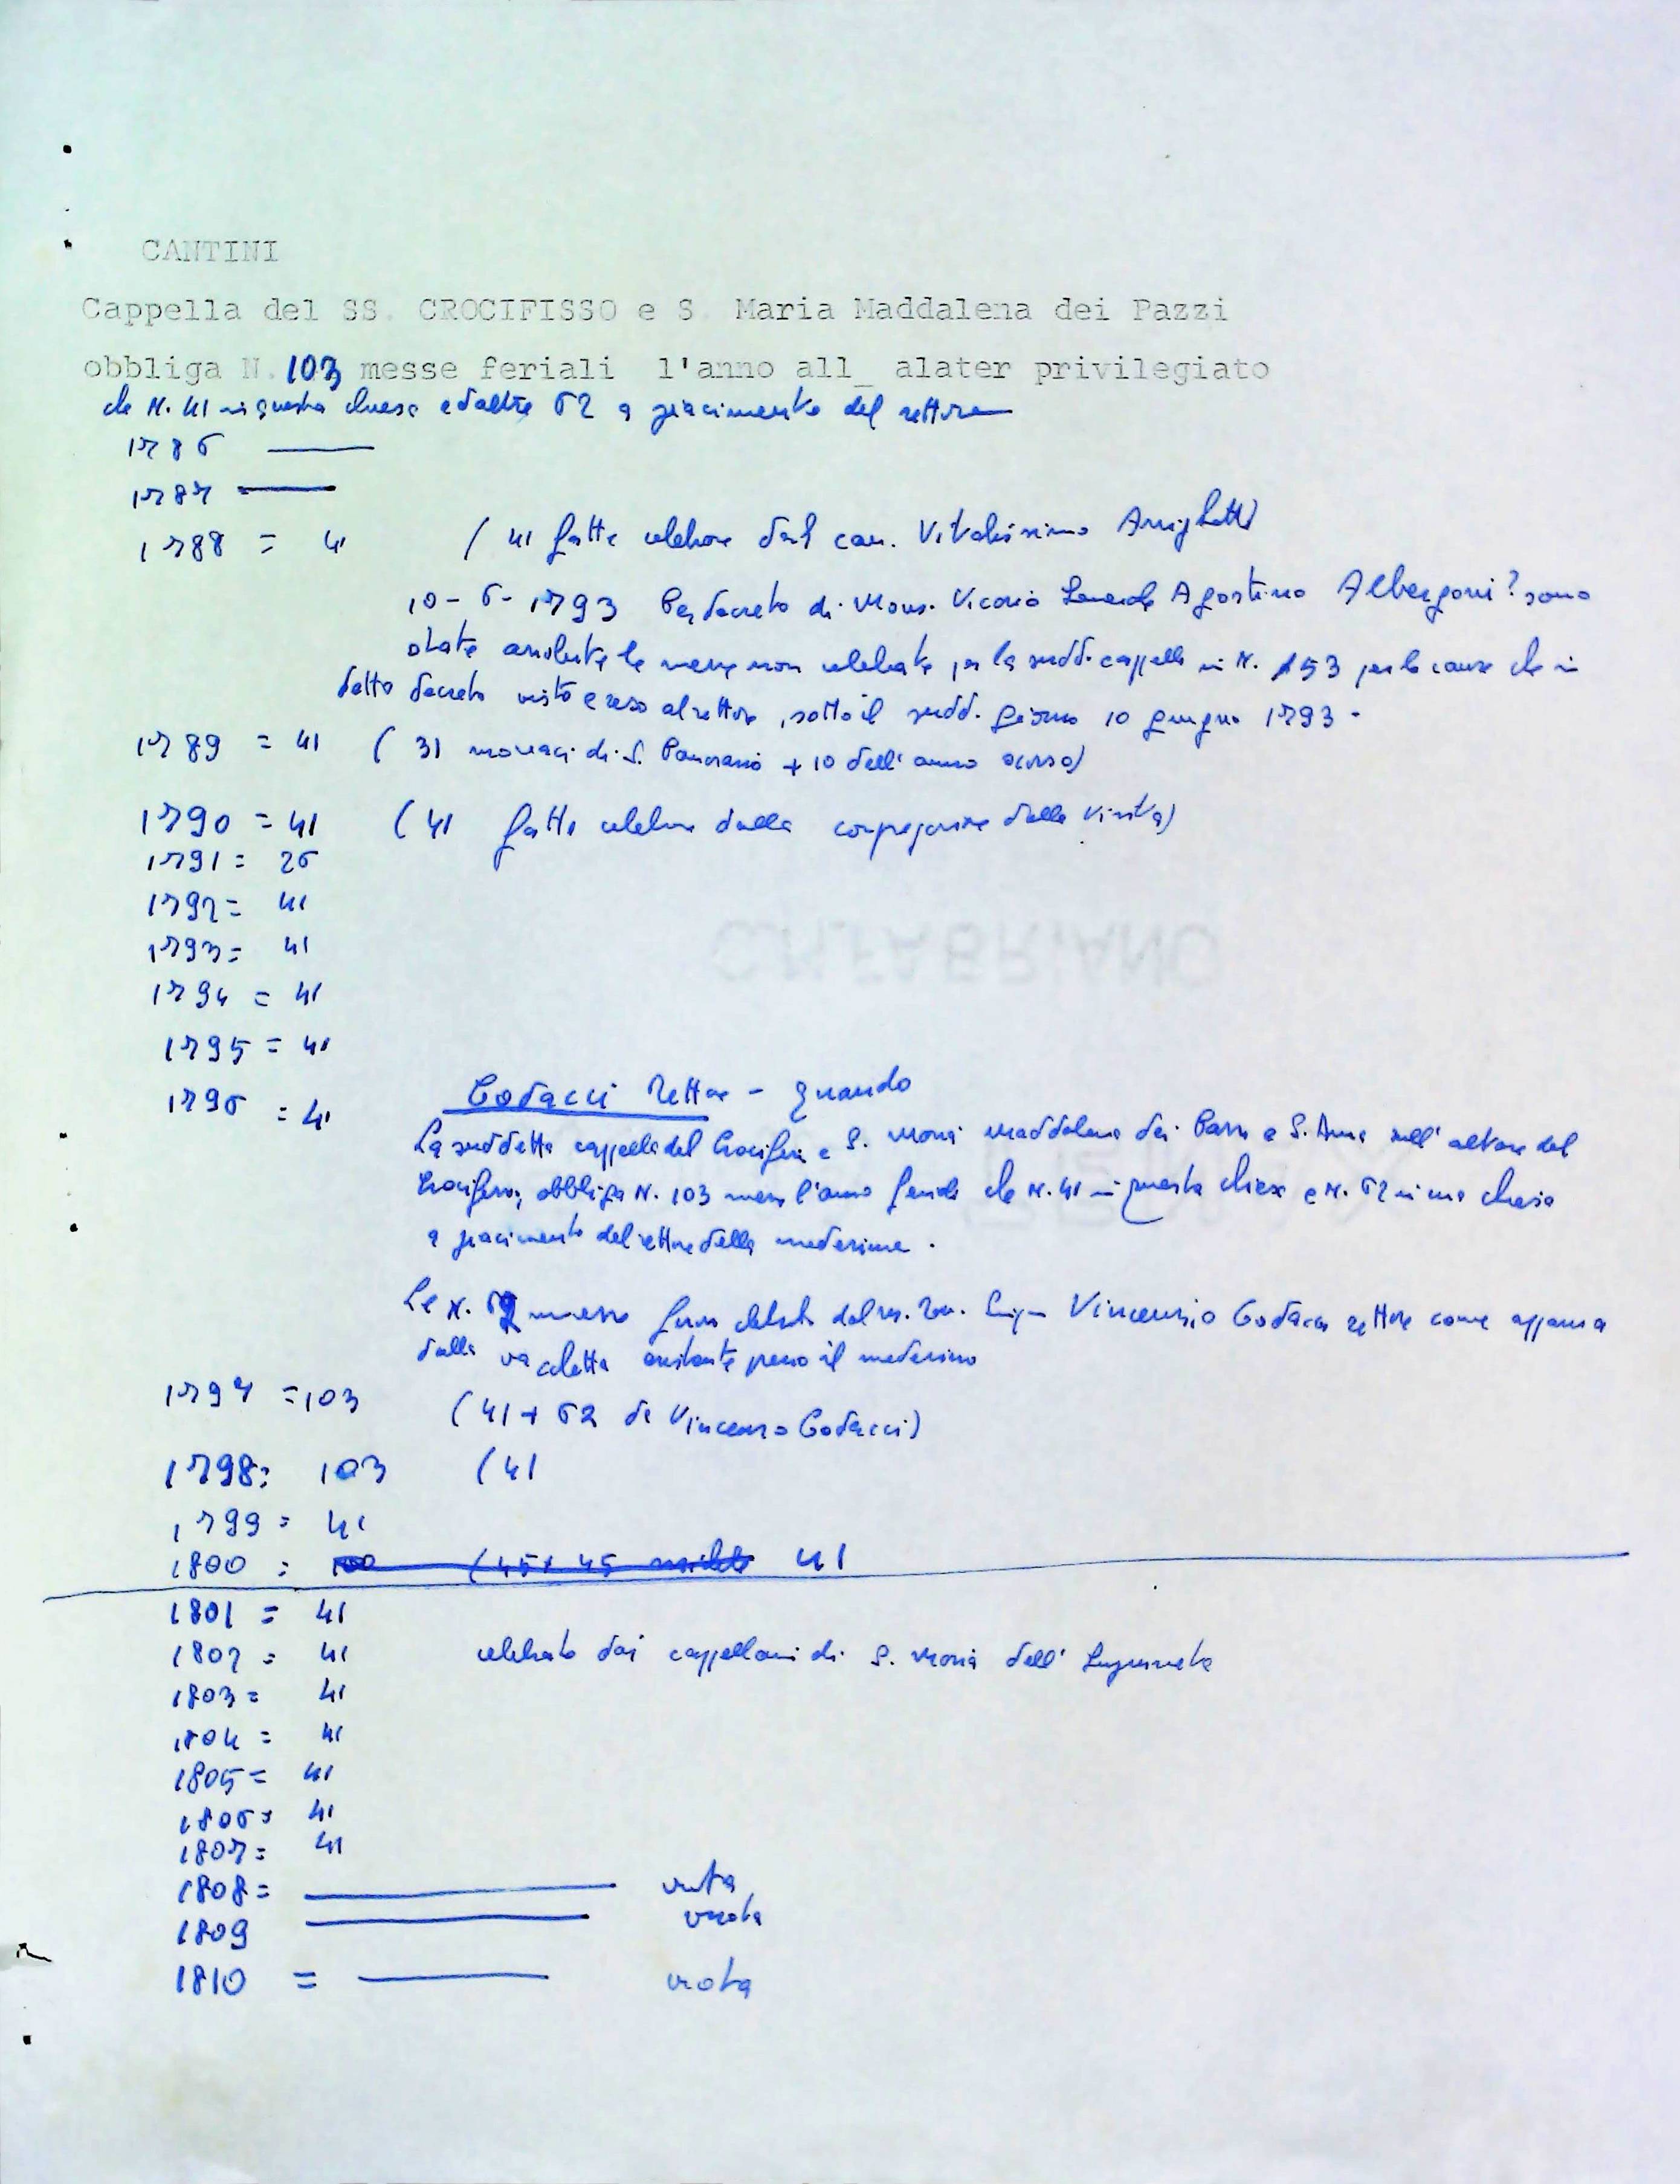 CANTINI
Cappella del SS. CROCIFISSO e S. Maria Maddalena dei Pazzi
obbliga N. 103 messe feriali l'anno all_ alater privilegiato
che N. 41 in questa chiesa ed altre 62 a piacimento del rettore
1786
1787
1788 = 41 ( 41 fatte celebrare dal can. Arrighetti)
10-6-1793 Per decreto di Mons. Vicario Generale Agostino Albergoni? sono
state assolute le messe non celebrate per la sudd. cappella in N. 153 per le cause che in
detto decreto visto e reso al rettore, sotto il sudd. giorno 10 giugno 1793.
1789 = 41 ( 31 monaci di S. Pancrazio + 10 dell'anno scorso)
1790 = 41 ( 41 fatte celebrare dalla congregazione della Visita)
1791 = 26
1792 = 41
1793 = 41
1794 = 41
1795 = 41
1796 = 41 Codacci Rettore - quando
La suddetta cappella del Crocifisso e S. Maria Maddalena dei Pazzi e S. Anna sull'altare del
Crocifisso, obbliga N. 103 messe l'anno feriali che N. 41 in questa chiesa e N. 62 in una chiesa
a piacimento del rettore della medesima.
Le N. 62 messe furon celebrate dal Vincenzio Codacci rettore come apparisce
dalla vacchetta esistente presso il medesimo
1797 = 103 (41 + 62 di Vincenzo Codacci)
1798 = 103 (41
1799 = 41
1800 = 100 (45 + 45 41
1801 = 41
1802 = 41 celebrate dai cappellani di S. Maria dell'Impruneta
1803 = 41
1804 = 41
1805 = 41
1806 = 41
1807 = 41
1808 = vuota
1809 vuota
1810 = vuota
C.M.FABRIANO